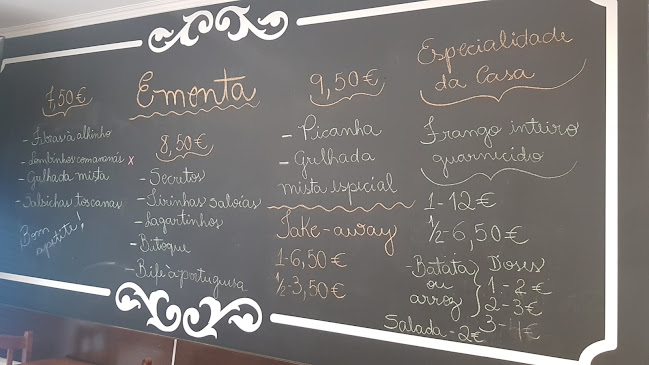 7,50€
- Febras à alhinho
- Lombinhos c/ananás x
- Grelhada mista
- Salsichas toscanas
Bom
apetite!
Ementa
8,50€
- Secretos
- Tirinhas saloias
- Lagartinhos
- Bitoque
- Bife à portuguesa
9,50€
- Picanha
- Grelhada
mista especial
Take-away
1-6,50€
½-3,50€
Especialidade
da Casa
Frango inteiro
guarnecido
1-12€
½-6,50€
- Batata
ou
arroz
Doses
1.-2€
2-3€
3-4€
Salada-2€